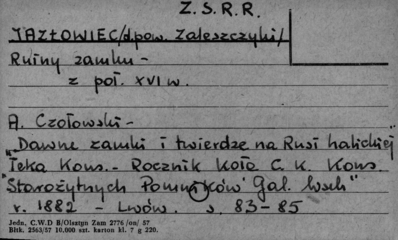 Z. S. R. R.
JAZŁOWIEC /d. pow. Zaleszczyki/
Ruiny zamku -
z poł. XVI w.
A. Czołowski -
"Dawne zamki i twierdze na Rusi halickiej"
Teka Kons. - Rocznik Koła C. K. Kons.
"Starożytnych Pomników Gal. Wsch"
r. 1882 - Lwów. s. 83-85
Jedn. C.W.D B/Olsztyn Zam 2776 /on/ 57
Bltk. 2563/57 10,000 szt. karton kl. 7 g 220.